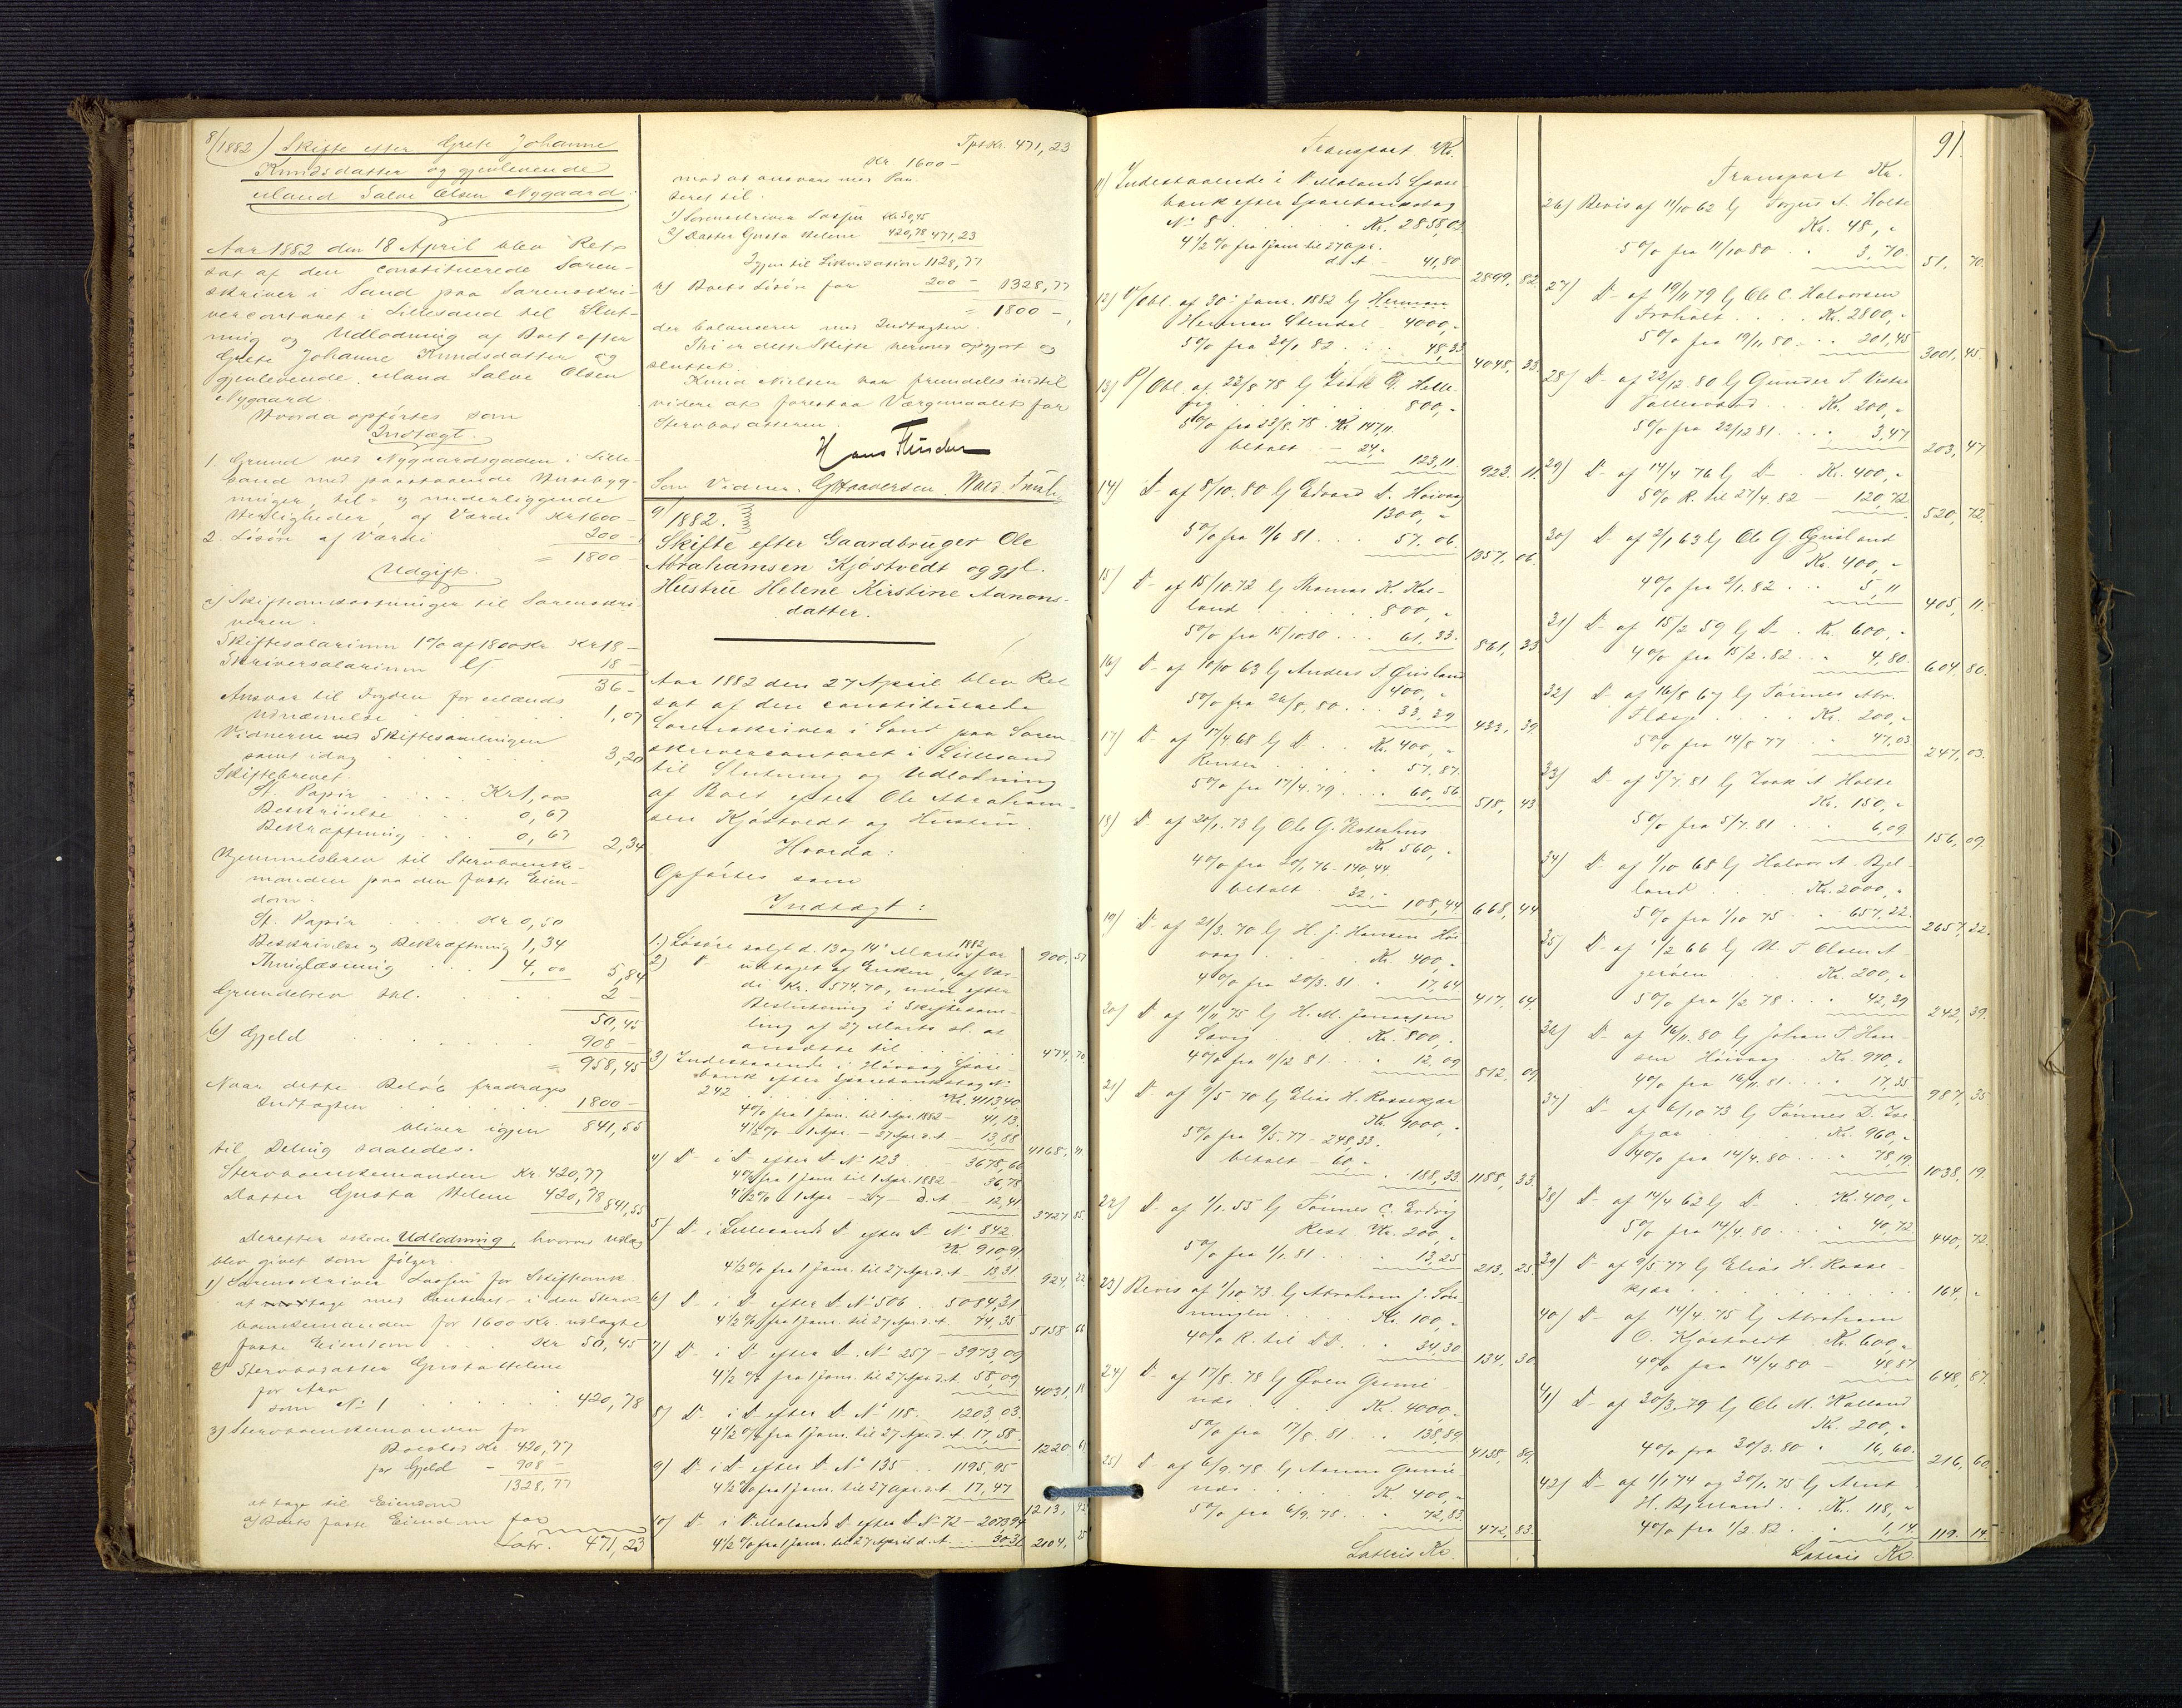 8/1882) Skifte efter Grete Johanne
Knudsdatter og gjenlevende
Mand Salve Olsen Nygaard.
Aar 1882 den 18 April blev Ret
sat af den constituerede Soren-
skriver i Sand paa Sorenskri-
vercontoret i Lillesand til Slut-
ning og Udlodning af Boet efter
Grete Johanne Knudsdatter og
gjenlevende Mand Salve Olsen
Nygaard
Hvorda opførtes som
Indtægt.
1. Grund ved Nygaardsgaden i Lille-
sand med paastaaende Husebyg-
ninger, til- og underliggende
Herligheder, af Værdi Kr 1600 -
2. Løsøre af Værdi 200 -
= 1800 -
Udgift.
a) Skifteomkostninger til Sorenskri-
veren.
Skiftesalarium 1% af 1800 Kr Kr 18 -
Skriversalarium 18 -
36 -
Ansvar til Fogden for Mænds
Udnævnelse 1,07
Vidnerne ved Skiftesamlingen
samt idag 3,20
Skiftebrevet.
St. Papir Kr 1,00
Beskrivelse 0,67
Bekræftning 0,67 2,34
Hjemmelsbrev til Stervboenke-
manden paa den faste Eien-
dom.
St. Papir Kr 0,50
Beskrivelse og Bekræftning 1,34
Thinglæsning 4,00 5,84
Grundebrev Skl. 2 -
50,45
b) Gjeld 908 -
= 958,45
Naar dette Beløb fradrages
Indtægten 1800 -
bliver igjen 841,55
til Deling saaledes.
Stervboenkemanden Kr. 420,77
Datter Gusta Helene 420,78 841,55
Derefter skede Udlodning, hvorved udlæg
blev givet som følger.
1) Sorenskriver Lassen for Skifteomk.
at tage med Panteret i den Stervbo-
boenkemanden for 1600 Kr. udlagte
faste Eiendom Kr 50,45
2) Stervbodatter Gusta Helene
for Arv
som No 1 420,78
3) Stervboenkemanden for
Boeslod Kr. 420,77
for Gjeld - 908 -
1328,77
at tage til Eiendom
a) Boets faste Eiendom for
Latr. 471,23
Tpt Kr. 471,23
Kr 1600 -
mod at ansvare med Pan-
teret til
1) Sorenskriver Lassen Kr 50,45
2) Datter Gusta Helene 420,78 471,23
Igjen til Likvidation 1128,77
b) Boets Løsøre for 200 - 1328,77
= 1800 -,
der balancerer med Indtægten.
Thi er dette Skifte hermed opgjort og
sluttet.
Knud Nielsen har fremdeles indtil
videre at forestaa Værgemaalet for
Stervbodatteren.
Som Vidner. G Haaversen.
9/1882.
Skifte efter Gaardbruger Ole
Abrahamsen Kjøstvedt og gjl.
Hustru Helene Kirstine Aanons-
datter.
Aar 1882 den 27 April blev Ret
sat af den constituerede
Sorenskriver i Sand paa Soren-
skrivercontoret i Lillesand
til Slutning og Udlodning
af Boet efter Ole Abraham-
sen Kjøstvedt og Hustru.
Hvorda:
Opførtes som
Indtægt:
1.) Løsøre solgt d. 13 og 14 Marts 1882 for 900,51
2) D- udtaget af Enken, af Vær-
di Kr. 574,70, men efter
Beslutning i Skiftesam-
ling af 27 Marts d. at
ansætte til 474,70
3) Indestaaende i Høivaag Spare-
bank efter Sparebanksbog No
242 Kr. 4113,40
4% fra 1 Jan. til 1 Apr. 1882 - 41,13
4½% - 1 Apr. - 27 Apr. d. A. - 13,88 4168,41
4) D- i D- efter D- No 123 - 3678,66
4% fra 1 Jan til 1 Apr. 1882 - 36,78
4½% 1 Apr - 27 - d. A - 12,41 3727,85
5) D- i Lillesands D- efter D- No 842
Kr 910,91
4½% fra 1 Jan. til 27 Apr. d. A - 13,31 924,22
6) D- i D- efter D- No 506. 5084,31
4½% fra 1 Jan. til 27 Apr. d. A. 74,35 5158,66
7) D- i D- efter D- No 257 - 3973,09
4½% fra 1 Jan. til 27 Apr. d. A 58,09 4031,18
8) D- i D- efter D- No 118. 1203,03
4½% fra 1 Jan. til 27 Apr. d. A 17,58 1220,61
9) D- i D- efter D- No 135 1195,95
4½% fra 1 Jan. til 27 Apr. d. A 17,47 1213,42
10) D- i V. Molands D- efter D- No 72 - 2073,94
4½% fra 1 Jan. til 27 April d. A. 30,31 2104,25
Transport Kr.
11) Indestaaende i V. Molands Spare-
bank efter Sparebanksbog
No 8 Kr. 2858,02
4½% fra 1 Jan til 27 Apr.
d. A. - 41,80 2899,82
12) P/Obl. af 30 Jan. 1882 b/ Herman
Herman Stendal - 4000,-
5% fra 20/1 82 48,33 4048,33
13) P/Obl. af 22/8 78 b/ Isak G. Helle
vig 800,-
5% fra 22/8. 78. Kr 147,11.
betalt - 24,- 123,11 923,11.
14) D- af 8/10. 80 b/ Edvard D. Høivaag
1300,-
5% fra 11/6 81 57,06 1357,06.
15) D- af 15/10 72 b/ Thomas K. Kal-
land 800,-
5% fra 15/10 80 61,33 861,33
16) D- af 10/10 63 b/ Anders T. Øvisland
400,-
5% fra 26/8. 80 33,39 433,39.
17) D- af 17/4 68 b/ D- Kr. 400,-
Renter 57,87.
5% fra 17/4. 79 60,56 518,43.
18) D- af 20/1. 73 b/ Ole G. Vesterhus
Kr. 560,-
4% fra 20/1 76 - 140,44
betalt 32,- 108,44 668,44
19) D- af 21/3. 70 b/ H. J. Hansen Høi
vaag Kr. 400,-
4% fra 20/3. 81 17,64 417,64.
20) D- af 11/11 75 b/ H. M. Jonassen
Kr. 800,-
4% fra 11/12 81 12,09 812,09
21) D- af 9/5 70 b/ Elias H. Rossekjær
Kr. 1000,-
5% fra 9/5. 77 - 248,33.
betalt - 60,- 188,33 1188,33.
22) D- af 1/1. 55 b/ Tønnes C. Ørdvig
Rest Kr. 200,-
5% fra 1/1. 81 13,25 213,25
23) Bevis af 1/10 73. b/ Abraham J.
Kr. 100,-
4% R. til DD 34,30 134,30
24) D- af 17/8. 78 b/ Øven Gunne-
uds Kr. 4000,-
5% fra 17/8. 81 138,89 4138,89.
25) D- af 6/9. 78 b/ Aanon Gunne-
uds Kr. 400,-
5% fra 6/9. 78 72,83 472,83.
Lateris Kr.
91.
Transport Kr.
26) Bevis af 11/10 62 b/ Torgus A. Holte
Kr. 48,-
5% fra 11/10 80 3,70. 51,70.
27) D- af 19/11 79 b/ Ole C. Halvorsen
Froholt Kr. 2800,-
5% fra 19/11. 80 201,45 3001,45.
28) D- af 22/12 80 b/ Gunder T. Vestre
Vallesværd Kr. 200,-
5% fra 22/12 81 3,47 203,47
29) D- af 14/4 76 b/ D- Kr. 400,-
5% R. til 27/4. 82 - 120,72 520,72.
30) D- af 2/1 63 b/ Ole G. Øvisland
Kr. 400,-
4% fra 2/1. 82 5,11 405,11.
31) D- af 15/2 59 b/ D- Kr. 600,-
4% fra 15/2. 82 4,80. 604,80.
32) D- af 16/8 67 b/ Tønnes Abr.
Kr. 200,-
5% fra 14/8 77 47,03 247,03.
33) D- af 5/7. 81 b/ Isak A. Holte
Kr. 150,-
5% fra 5/7. 81 6,09 156,09.
34) D- af 1/10 68 b/ Halvor A. Bjel-
land Kr. 2000,-
5% fra 1/10 75 657,22 2657,22.
35) D- af 1/2 66 b/ Ol. T. Olsen A-
gerøen Kr. 200,-
5% fra 1/2 78 42,39 242,39.
36) D- af 16/11. 80 b/ Johan T. Han-
sen Høivaag Kr. 970,-
4% fra 16/11. 81 17,35 987,35
37) D- af 6/10 73 b/ Tønnes D. Ise
kjær Kr. 960,-
4% fra 14/4. 80 78,19. 1038,19.
38) D- af 14/4 62 b/ D- Kr. 400,-
5% fra 14/4. 80 40,72 440,72.
39) D- af 9/5 77 b/ Elias H. Rosse-
kjær 164,-
40) D- af 14/4. 75 b/ Abraham
O. Kjøstvedt Kr. 600,-
4% fra 14/4 80 - 48,87 648,87.
41) D- af 20/3. 79 b/ Ole M. Kalland
Kr. 200,-
4% fra 20/3. 80 16,60. 216,60.
42) D- af 1/1 74 og 30/1. 75 b/ Arnt
H. Bjelland Kr. 118,-
4% fra 1/2. 82 1,14 119,14.
Lateris Kr